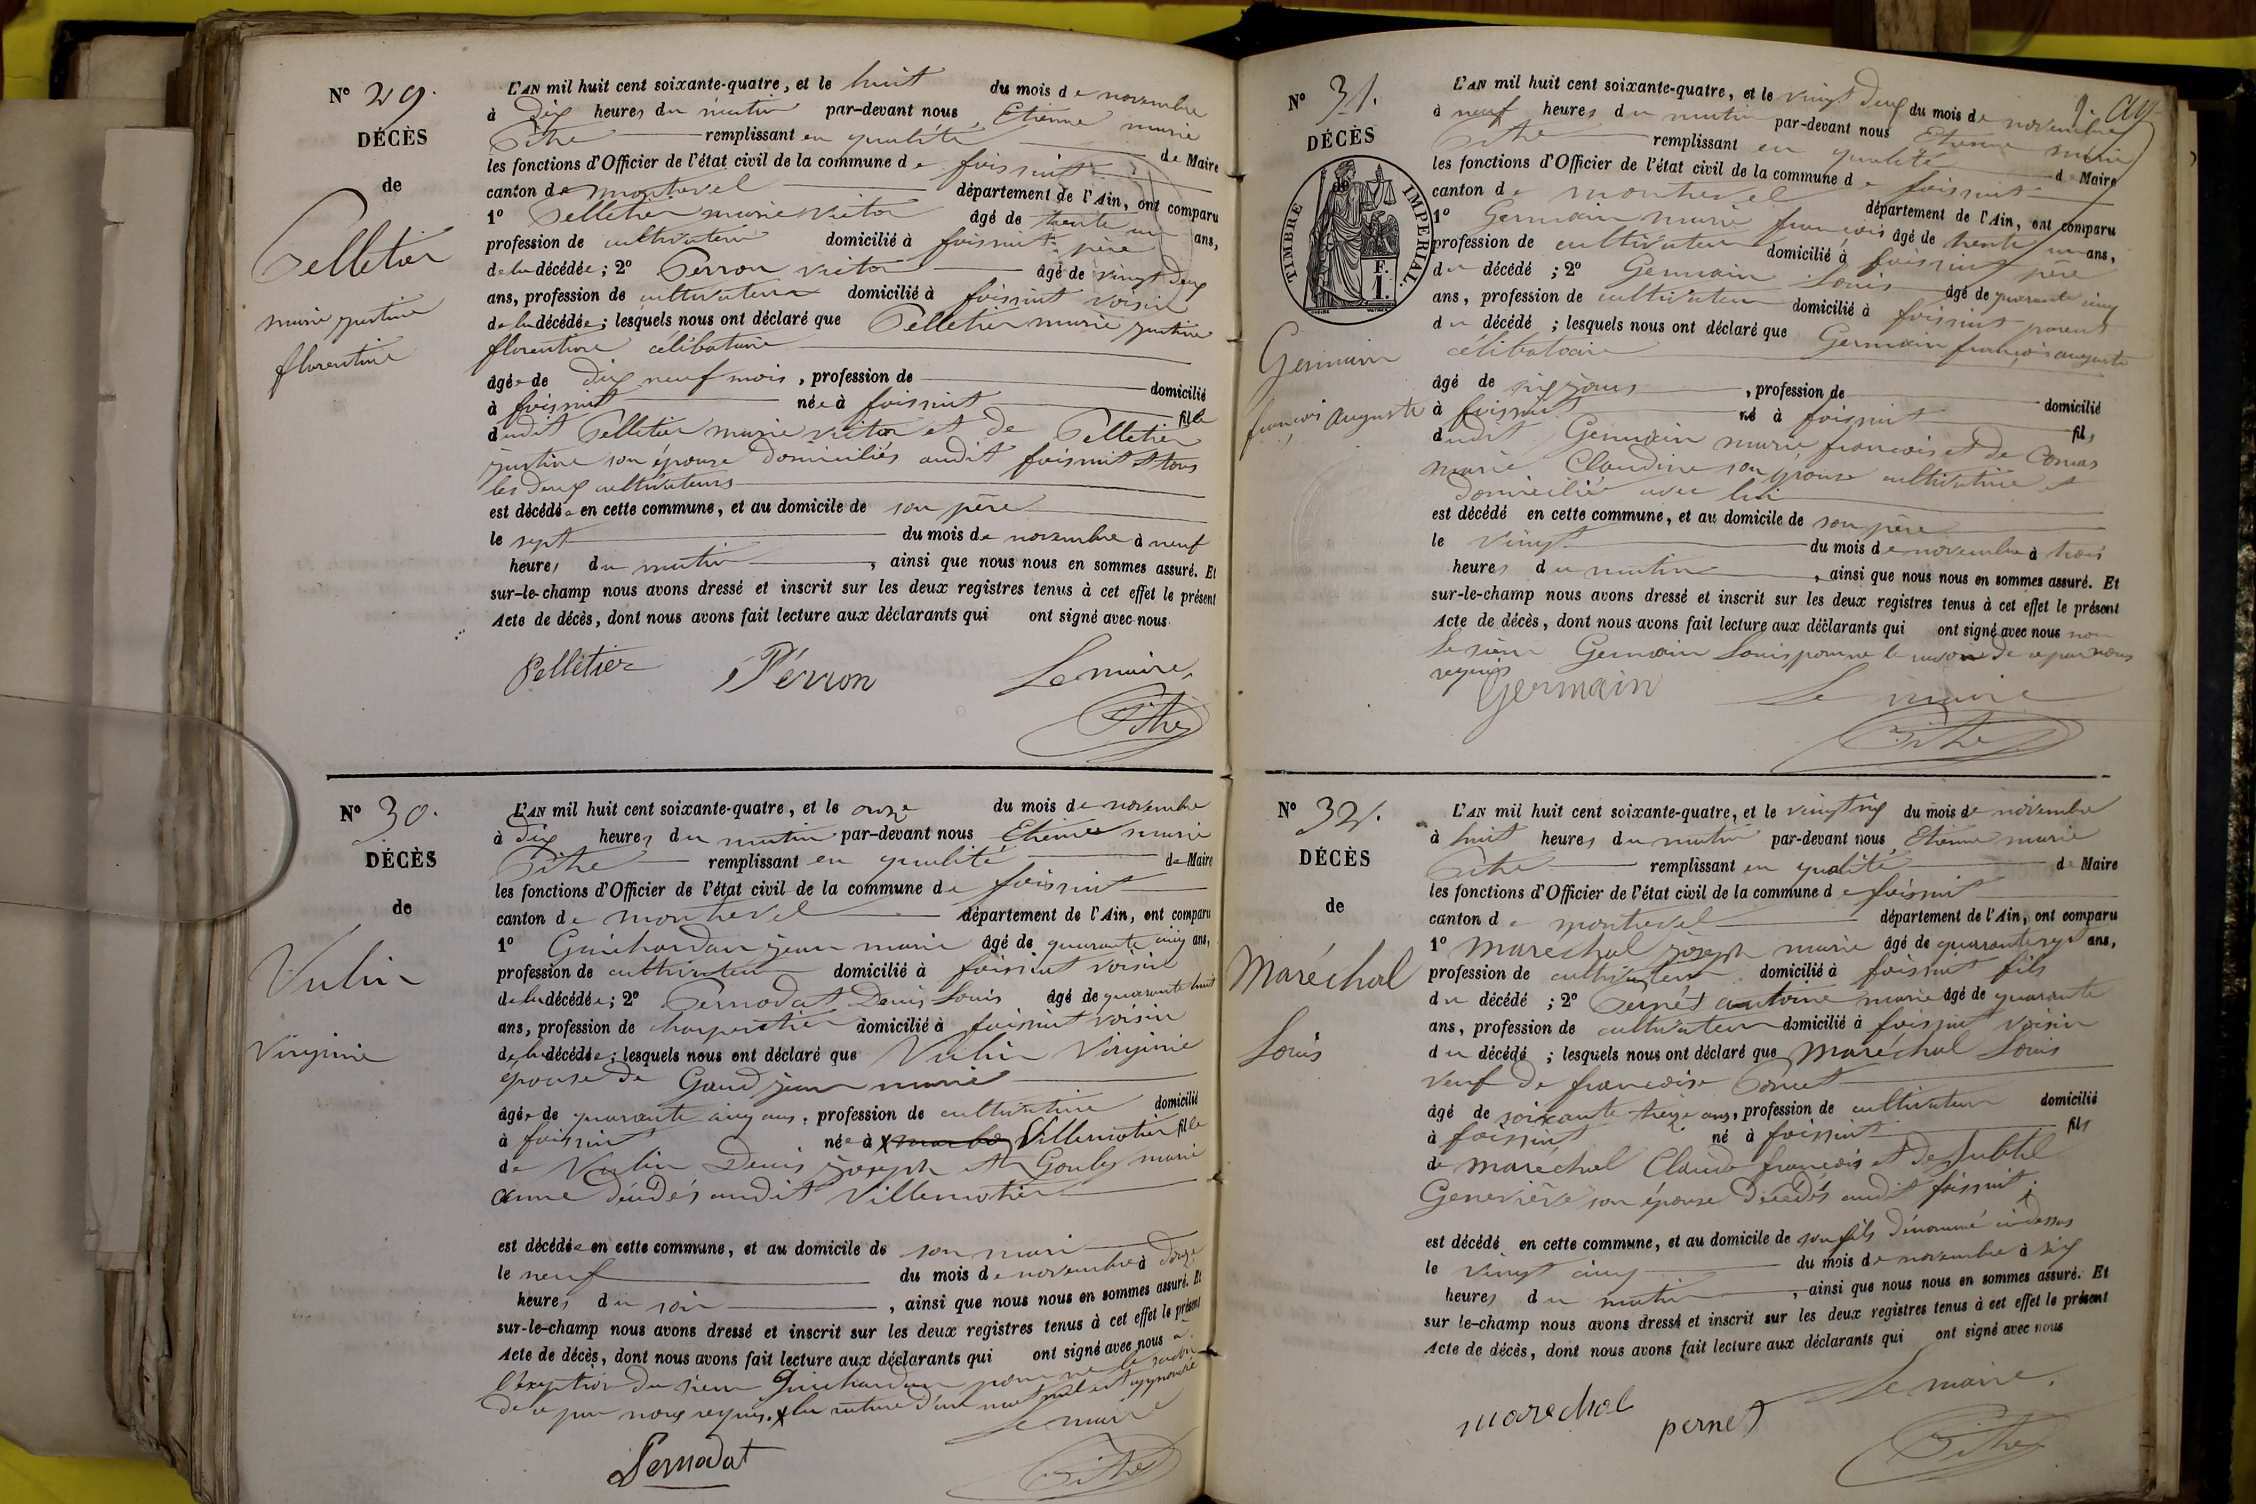 N° 29.
DÉCÈS
de
Pelletier
marie justine
florentine
L'AN mil huit cent soixante-quatre, et le huit du mois de novembre
à Dix heures du matin par-devant nous, Etienne marie
Pithe remplissant en qualité de Maire
les fonctions d'Officier de l'état civil de la commune de foissiat
canton de montrevel département de l'Ain, ont comparu
1° Pelletier marie victor âgé de trente un ans,
profession de cultivateur domicilié à foissiat père
de la décédée; 2° Perron victor âgé de vingt deux
ans, profession de cultivateur domicilié à foissiat voisin
de la décédée; lesquels nous ont déclaré que Pelletier marie justine
florentine célibataire
âgée de dix neuf mois, profession de domicilié
à foissiat née à foissiat fille
dudit Pelletier marie victor et de Pelletier
justine son épouse domiciliés audit foissiat et tous
les deux cultivateurs
est décédée en cette commune, et au domicile de son père
le sept du mois de novembre à neuf
heures du matin, ainsi que nous nous en sommes assuré. Et
sur-le-champ nous avons dressé et inscrit sur les deux registres tenus à cet effet le présent
Acte de décès, dont nous avons fait lecture aux déclarants qui ont signé avec nous.
Pelletier Pérron Le maire,
Pithe
N° 30.
DÉCÈS
de
Vulin
Virginie
L'AN mil huit cent soixante-quatre, et le onze du mois de novembre
à dix heures du matin par-devant nous Etienne marie
Pithe remplissant en qualité de Maire
les fonctions d'Officier de l'état civil de la commune de foissiat
canton de montrevel département de l'Ain, ont comparu
1° Guichardan jean marie âgé de quarante cinq ans,
profession de cultivateur domicilié à foissiat voisin
de la décédée; 2° Pernodat Denis Louis âgé de quarante huit
ans, profession de charpentier domicilié à foissiat voisin
de la décédée; lesquels nous ont déclaré que Vulin Virginie
épouse de Gaud jean marie
âgée de quarante cinq ans, profession de cultivatrice domicilié
à foissiat née à Villemotier fille
de Vulin Denis joseph et de Gouly marie
anne décédés audit Villemotier
est décédée en cette commune, et au domicile de son mari
le neuf du mois de novembre à onze
heures du soir, ainsi que nous nous en sommes assuré. Et
sur-le-champ nous avons dressé et inscrit sur les deux registres tenus à cet effet le présent
Acte de décès, dont nous avons fait lecture aux déclarants qui ont signé avec nous à
l'exception du sieur Guichardan pour ne le savoir
de ce par nous requis. x la rature d'un mot nul est approuvée
Le maire
Pernodat Pithe
N° 31.
DÉCÈS
TIMBRE IMPERIAL.
F.
1.
Germain
françois auguste
L'AN mil huit cent soixante-quatre, et le vingt deux du mois de novembre
à neuf heures du matin par-devant nous Etienne marie
Pithe remplissant en qualité de Maire
les fonctions d'Officier de l'état civil de la commune de foissiat
canton de montrevel département de l'Ain, ont comparu
1° Germain marie françois âgé de trente un ans,
profession de cultivateur domicilié à foissiat père
du décédé; 2° Germain Louis âgé de quarante cinq
ans, profession de cultivateur domicilié à foissiat parent
du décédé; lesquels nous ont déclaré que Germain françois auguste
célibataire
âgé de six jours, profession de domicilié
à foissiat né à foissiat fils
dudit Germain marie françois et de Comas
marie Claudine son épouse cultivatrice et
domiciliée avec lui
est décédé en cette commune, et au domicile de son père
le vingt du mois de novembre à trois
heures du matin, ainsi que nous nous en sommes assuré. Et
sur-le-champ nous avons dressé et inscrit sur les deux registres tenus à cet effet le présent
Acte de décès, dont nous avons fait lecture aux déclarants qui ont signé avec nous non
le sieur Germain Louis pour ne le savoir de ce par nous
requis
Germain Le maire
Pithe
N° 32.
DÉCÈS
de
Maréchal
Louis
L'AN mil huit cent soixante-quatre, et le vingt six du mois de novembre
à huit heures du matin par-devant nous, Etienne marie
Pithe remplissant en qualité de Maire
les fonctions d'Officier de l'état civil de la commune de foissiat
canton de montrevel département de l'Ain, ont comparu
1° Maréchal joseph marie âgé de quarante sept ans,
profession de cultivateur domicilié à foissiat fils
du décédé; 2° Pernet antoine marie âgé de quarante
ans, profession de cultivateur domicilié à foissiat voisin
du décédé; lesquels nous ont déclaré que Maréchal Louis
veuf de françoise Cornet
âgé de soixante treize ans, profession de cultivateur domicilié
à foissiat né à foissiat fils
de maréchal Claude françois et de Subtil
Geneviève son épouse décédés audit foissiat;
est décédé en cette commune, et au domicile de son fils dénommé ci-dessus
le vingt cinq du mois de novembre à six
heures du matin, ainsi que nous nous en sommes assuré. Et
sur le-champ nous avons dressé et inscrit sur les deux registres tenus à cet effet le présent
Acte de décès, dont nous avons fait lecture aux déclarants qui ont signé avec nous
Le maire.
marechal pernet
Pithe